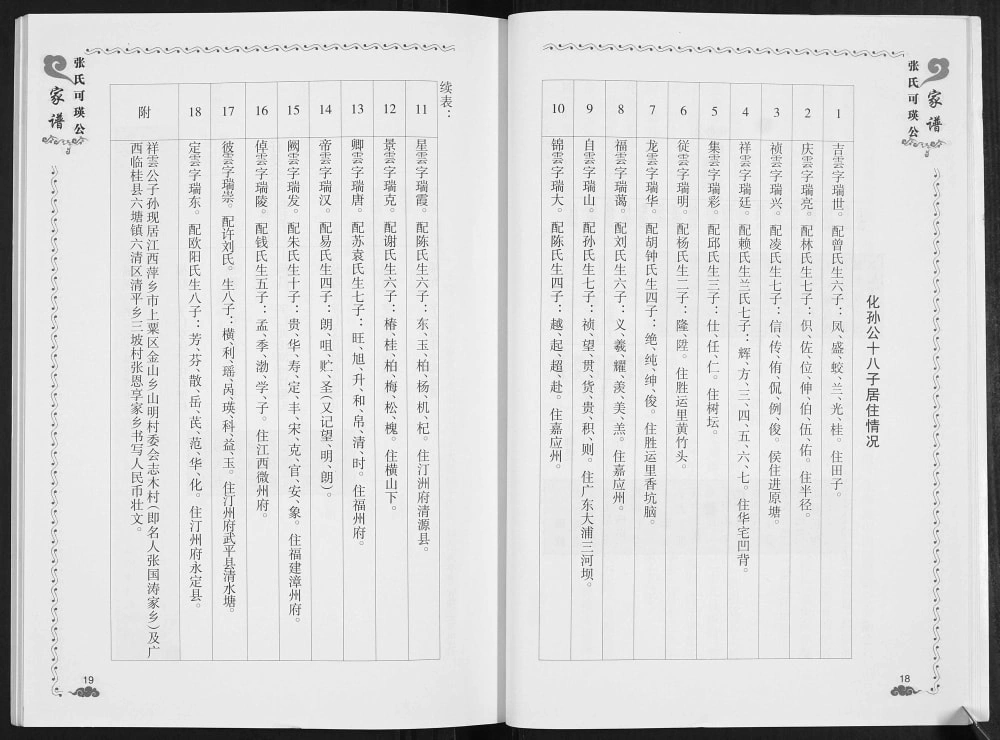 张氏可瑛公
家谱
化孙公十八子居住情况
1
吉雲字瑞世。配曾氏生六子：凤、盛、蛟、兰、光、桂。住田子。
2
庆雲字瑞亮。配林氏生七子：伿、佐、位、伸、伯、伍、佑。住半径。
3
祯雲字瑞兴。配凌氏生七子：信、传、侑、侃、例、俊。侯住进原塘。
4
祥雲字瑞廷。配赖氏生兰氏七子：辉、方、三、四、五、六、七。住华宅凹背。
5
集雲字瑞彩。配邱氏生三子：仕、任、仁。住树坛。
6
従雲字瑞明。配杨氏生二子：隆、陞。住胜运里黄竹头。
7
龙雲字瑞华。配胡钟氏生四子：绝、纯、绅、俊。住胜运里香坑脑。
8
福雲字瑞蔼。配刘氏生六子：义、羲、耀、羡、美、羔。住嘉应州。
9
自雲字瑞山。配孙氏生六子：祯、望、贯、货、贵、积、则。住广东大浦三河坝。
10
锦雲字瑞大。配陈氏生四子：越、起、超、赴。住嘉应州。
18
张氏可瑛公
家谱
续表：
11
星雲字瑞霞。配陈氏生六子：东、玉、柏、杨、机、杞。住汀洲府清源县。
12
景雲字瑞克。配谢氏生六子：椿、桂、柏、梅、松、槐。住横山下。
13
卿雲字瑞唐。配苏袁氏生七子：旺、旭、升、和、帛、清、时。住福州府。
14
帝雲字瑞汉。配易氏生四子：朗、咀、贮、圣（又记望、明、朗）。
15
阙雲字瑞发。配朱氏生十子：贵、华、寿、定、丰、宋、克、官、安、象。住福建漳州府。
16
倬雲字瑞陵。配钱氏生五子：孟、季、渤、学、子。住江西微州府。
17
彼雲字瑞崇。配许刘氏。生八子：横、利、瑶、呙、瑛、科、益、玉。住汀州府武平县清水塘。
18
定雲字瑞东。配欧阳氏生八子：芳、芬、散、岳、芪、范、华、化。住汀州府永定县。
附
祥雲公子孙现居江西萍乡市上粟区金山乡山明村委会志木村（即名人张国涛家乡）及广
西临桂县六塘镇六清区清平乡三坡村张恩享家乡书写人民币壮文。
19